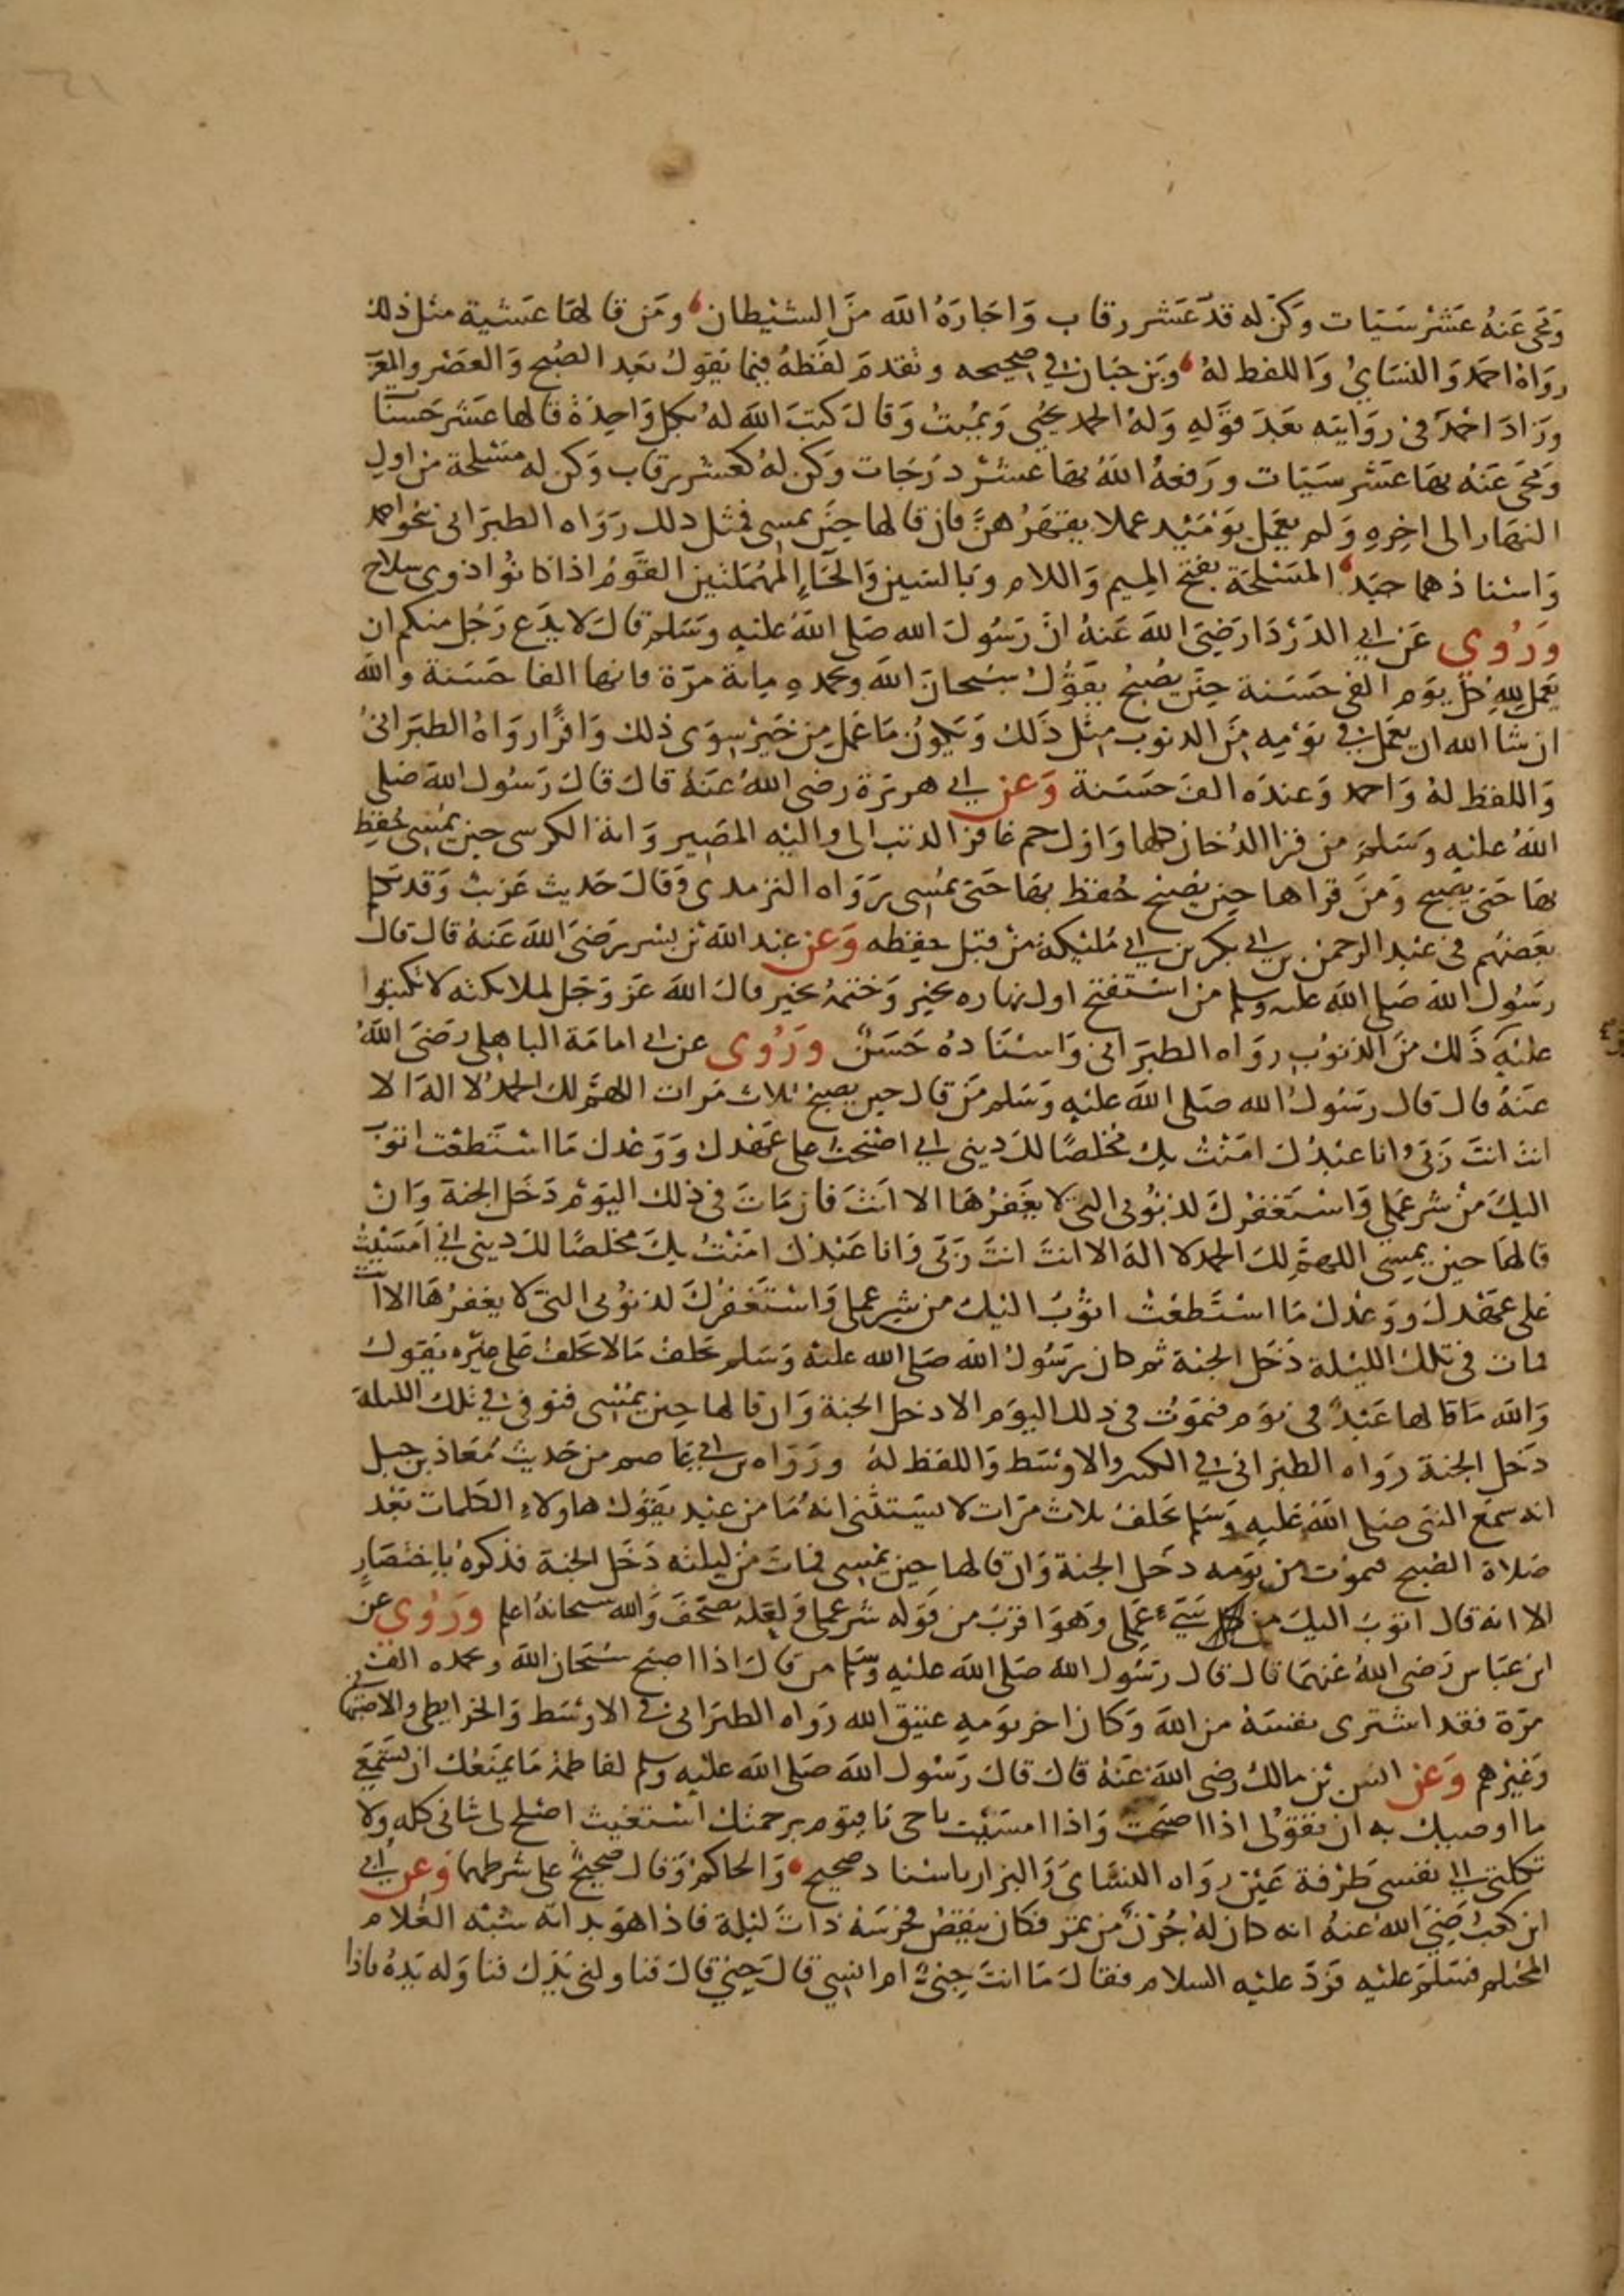 وَمَحى عَنهُ عَشْرَ سَيّات وَكُنّ له قدّ عَشر رقاب وَاجَارَهُ الله مِنَ الشيْطان ومَن قالهَا عَشية مثل ذلك
روَاهُ احمَد وَالنسَاىُ وَاللفظ لهُ وَبن حبَان في صحيحه وتقدمَ لفظهُ فيما يَقوُلُ بَعد الصُبح وَالعصْر والمغرب
وزادَ احْمَدُ فى روَايته بَعدَ قوَله وَلهُ الحمد يحيى وَيميتُ وَقالَ كتبَ الله لهُ بكل وَاحِدَة قالها عشر حَسنات
وَمحىَ عَنهُ بهَا عَشر سَيّات ورَفعهُ اللهُ بهَا عشْر درَجَات وكن لهُ كعشر رقاب وَكن له مسْلحة من اول
النهَار الى اخِرِهِ وَلم يعمل يوَمَئِيد عملا يقهَرُهنّ فان قالها حِيَن يمسى فمثل ذلك رَوَاه الطبرَانى بنحواحمد
وَاسْنادهما جيّد المَسْلحَة بفتح الميم وَاللام وَبالسّين وَالحَآءِ المُهمَلتيْن القوَمُ اذا كانوُا ذوى سِلاح
وَرُوي عَن ابى الدَرْدَا رَضىَ اللهَ عَنهُ انَّ رَسُولَ الله صَلى اللهُ عَليْهِ وسَلم قالَ لا يدَع رَجُل منكم ان
يَعَمل لِلهِ كل يوَم الفى حَسَنة حِيَن يُصْبحُ يقوُلُ سُبحانَ الله وبحَمدهِ مِاية مرّة فانها الفا حَسَنة والله
ان شا الله ان يعَملَ في يوْمِه مِنَ الذنوُب مِثل ذَلك وَيكوُنُ مَا عَمل مِن خَيْر سِوَى ذلك وَافرًا روَاهُ الطبَرَانىُ
وَاللفظ لهُ وَاحمد وَعندَه الفَ حسَنة وَعَن ابي هريرَة رضى اللهُ عَنهُ قالَ قالَ رَسُول الله صَلى
اللهُ عليْه وسَلمَ من قرَا الدُخان كلها وَاول حم غافر الذنب الى واليْه المصِير وَاية الكرسى حِين يمُسى حُفظ
بهَا حَتى يصبح وَمنَ قرَاها حين يُصْبح حُفظ بهَا حَتى يمُسِى رَوَاه الترمدى وَقالَ حَديث غريبْ وَقد تكلم
بعَضهُم فى عَبْد الرحمن بن ابي بكر بن ابي مُليْكة من قبل حفظه وَعَن عبْد الله بْن بُسْر رَضىَ الله عَنهُ قالَ قالَ
رسَوُل الله صَلى الله عليه وسلم من اسْتفتح اول نهاره بخير وَختمهُ بخير قالَ الله عَزّ وَجَل لملايكته لا تكتبوُا
عليْه ذَلك منَ الذنوُب روَاه الطبرَانى وَاسْنَادهُ حَسَنٌ ورُوى عن ابى امامَة الباهلى رضَىَ الله
عنهُ قال قال رسَوُلُ الله صَلى الله عليْهِ وَسَلم مَن قالَ حين يصبح ثلاث مَرات اللهمّ لك الحمدُ لا الهَ الا
انتَ انتَ رَبىّ وانا عبْدُكَ امَنْتُ بكَ مُخلصًا لكَ دينى اني اصْبَحتُ على عَهْدكَ وَوَعْدكَ مَا اسْتَطعْتُ اتوُبُ
اليكَ منْ شر عملى وَاسْتَغفِرُكَ لذنوُبى التى لا يغَفرُهَا الا انَتَ فان مَاتَ فى ذلكَ اليوَم دَخَل الجنة وَانْ
قالهَا حين يمسِى اللهمَّ لكَ الحمد لا الهَ الا انتَ انتَ رَبّى وَانا عَبْدُكَ امَنْتُ بكَ مخلصًا لكَ دينى اني امَسَيْتُ
عَلى عهْدكَ ووَعْدكَ مَا اسْتَطعْتُ اتوُبُ اليْكَ من شر عملى وَاسْتَغفرُكَ لذنوُبى التى لا يغفرُهَا الا انت
فمات فى تلكَ الليْلة دَخَل الجنة ثم كان رَسُولُ الله صَلى الله عليْه وَسَلم يحَلفُ مَالا يحَلفُ عَلى غيْرِه يَقوُل
وَالله مَا قالها عَبْدٌ فى يوَم فيَمَوُت فى ذلك اليوَم الا دخل الجنة وَان قالها حِين يمُسِى فتوفى في تلكَ الليلة
دَخل الجنة روَاه الطبرَانى في الكبير والاوْسَط وَاللفظ لهُ ورَوَاه بن ابي عاصم من حَديث مُعَاذ بن جبل
انه سَمعَ النبى صَلى اللهُ عَليه وَسَلم يحَلفُ ثلاث مَرّات لا يسَتثنى انهُ مَا من عبْد يقَوُلُ هاولاءِ الكَلمات بَعْد
صَلاة الصُبح فيموُت من يوَمه دخَل الجنة وَان قالها حِين يمْسى فماتَ منْ ليلته دَخَل الجنة فذكرهُ باختصَارٍ
الا انه قال اتوُبَ اليكَ من سَيّءِ عمَلى وَهوَ اقرَبَ من قوَله شر عملى وَلعَله تصحَّفَ وَالله سبحَانهُ اعلم وَرُوى عَن
ابن عَباسِ رَضى اللهُ عَنهمَا قال قال رسَوُل الله صَلى الله عَليْه وسَلم من قالَ اذا اصبَح سُبْحانَ الله وبحَمده الفَ
مرّة فقد اشترى نفسَهُ من اللهَ وَكانَ اخر يوَمهِ عتيق الله رَواه الطبَرَانى فى الاوْسَط وَالخرايطى والاصبهانى
وَغيْرهم وَعَن انس بْن مالك رضى الله عَنهُ قالَ قالَ رَسُول اللهَ صَلى اللهَ عليْه وسلم لفاطمة مَا يمنَعُك ان تسْتَمعَى
ما اوصيك به ان تقوُلى اذا اصبَحت وَاذا امسَيْت ياحى ياقيوُم برحمتكَ اسْتَغيث اصْلح لى شانى كله ولا
تكلنى الى نفسى طَرْفة عَيْن روَاه النسَاىَ وَالبزار باسنادصحيح وَالحاكمُ وَقالَ صحيحٌ على شرطهما وَعَن ابي
ابن كعْب رَضىَ الله عنهُ انه كان لهُ جُرْنٌ من تمر فكان ينقصُ فحرسَهُ ذاتَ ليْلة فاذا هوَ بدابّه شبْه الغُلام
المحْتلم فسَلمَ عليْه فرَدَّ عليْه السلام فقالَ مَا انتَ جِنيٌ ام انسِي قالَ جِني قالَ فناولنى يَدَكَ فناوَله يَدهُ فاذا